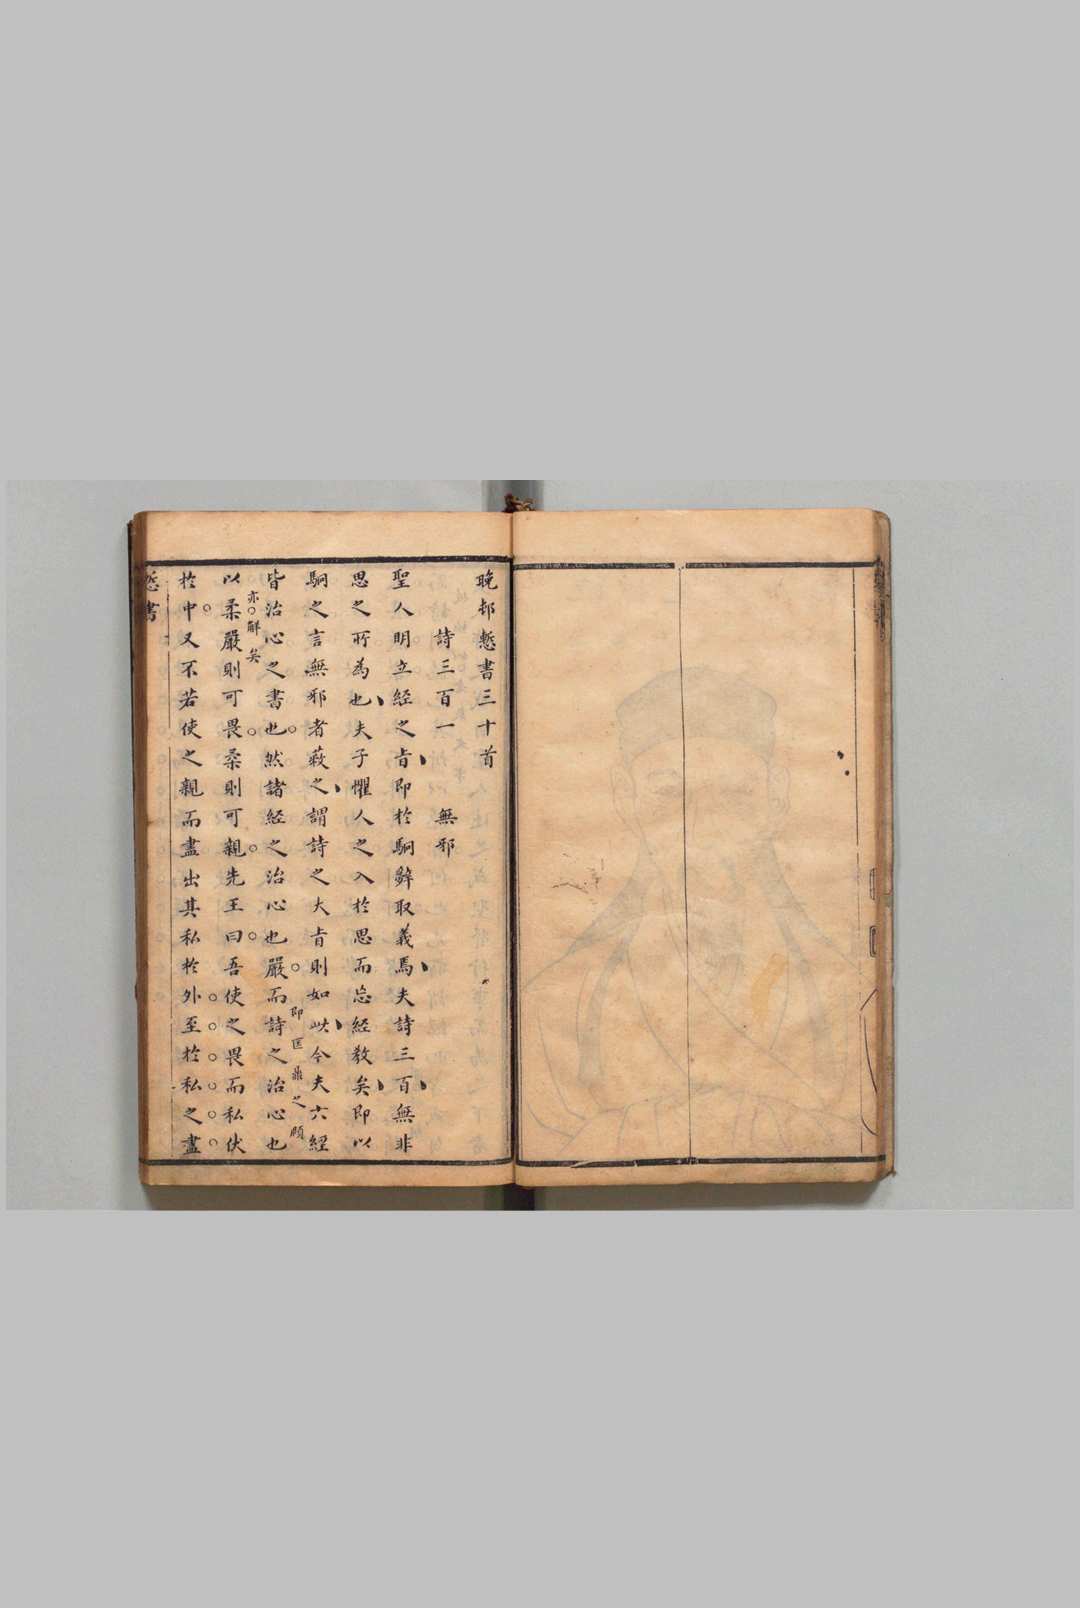 晚邨慙書三十首
詩三百一　無邪
聖人明立經之旨即於駉辭取義焉夫詩三百無非
思之所為也夫子懼人之入於思而忘經教矣即以
駉之言無邪者蔽之謂詩之大旨則如此今夫六經
皆治心之書也然諸經之治心也嚴而詩之治心也
即匡鼎之頤
亦解矣
以柔嚴則可畏柔則可親先王曰吾使之畏而私伏
於中又不若使之親而盡出其私於外至於私之盡
慙書